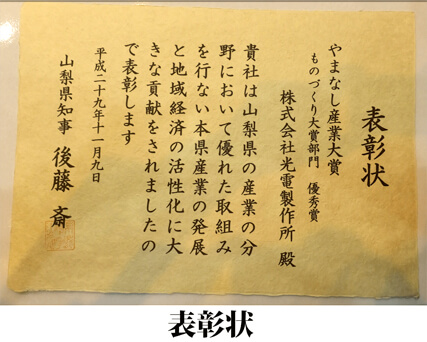 表彰状
やまなし産業大賞
ものづくり大賞部門　優秀賞
株式会社光電製作所 殿
貴社は山梨県の産業の分
野において優れた取組み
を行ない本県産業の発展
と地域経済の活性化に大
きな貢献をされましたの
で表彰します
平成二十九年十一月九日
山梨県知事　後藤　斎
表彰状